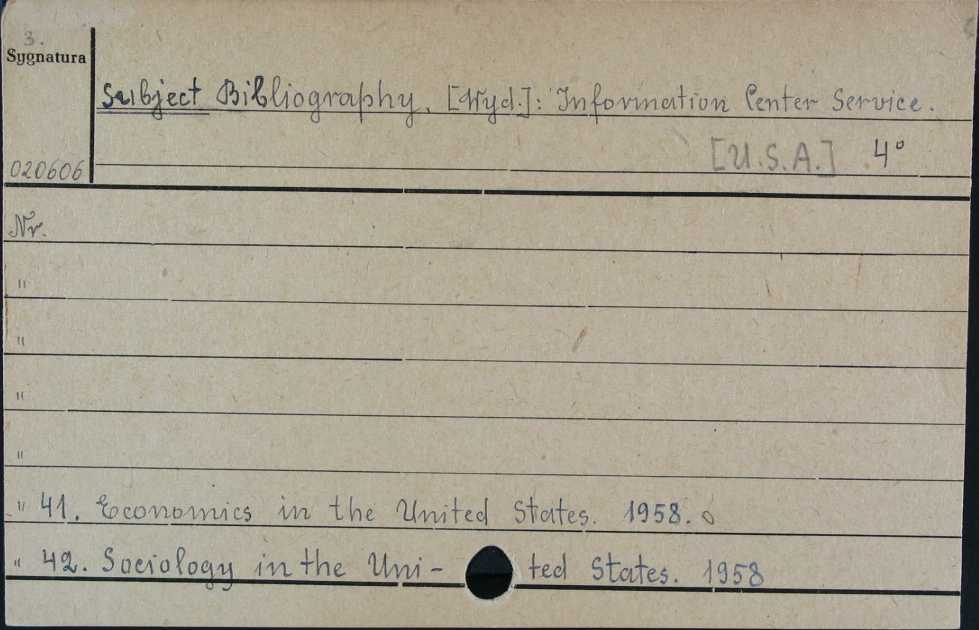 3.
Sygnatura
Subject Bibliography. [Wyd.]: Information Center Service.
[U.S.A.] 4°
020606
Nr.
"
"
"
"
" 41. Economics in the United States. 1958.
" 42. Sociology in the Uni- ted States. 1958